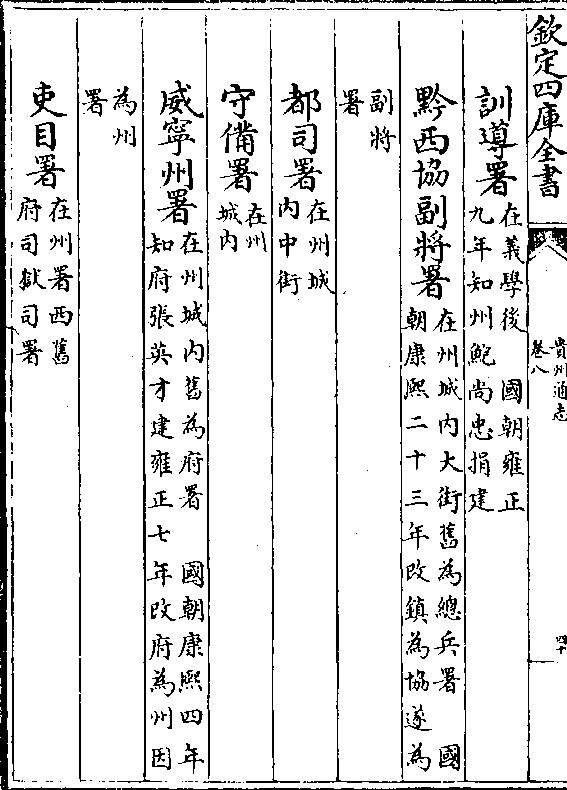 欽定四庫全書
貴州通志
卷八
四十
訓導署
在義學後　國朝雍正
九年知州鮑尚忠捐建
黔西協副將署
在州城内大街舊為總兵署　國
朝康熙二十三年改鎮為協遂為
副將
署
都司署
在州城
内中街
守備署
在州
城内
威寧州署
在州城内舊為府署　國朝康熙四年
知府張英才建雍正七年改府為州因
為州
署
吏目署
在州署西舊
府司獄司署